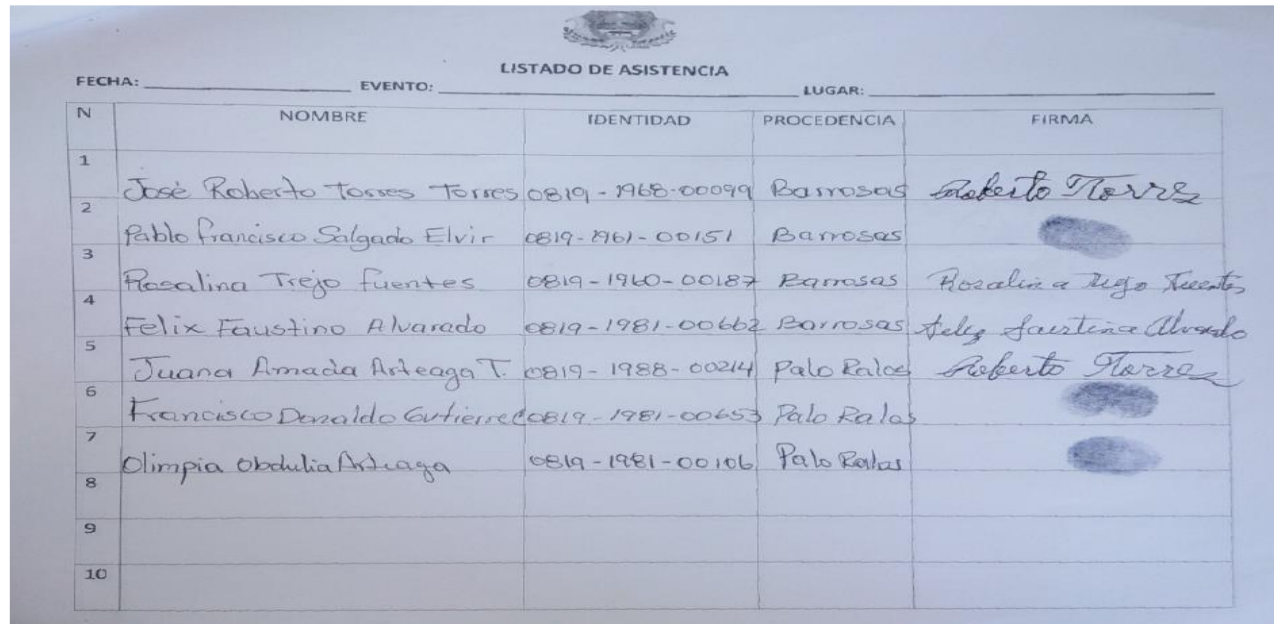 LISTADO DE ASISTENCIA
FECHA: EVENTO: LUGAR:
N NOMBRE IDENTIDAD PROCEDENCIA FIRMA
1 José Roberto Torres Torres 0819-1968-00099 Barrosas Roberto Torres
2 Pablo francisco Salgado Elvir 0819-1961-00151 Barrosas
3 Rosalina Trejo fuentes 0819-1960-00187 Barrosas Rosalina Trejo Fuentes
4 Felix Faustino Alvarado 0819-1981-00662 Barrosas felix faustino Alvarado
5 Juana Amada Arteaga T. 0819-1988-00214 Palo Ralos Roberto Torres
6 Francisco Donaldo Gutierrez 0819-1981-00653 Palo Ralos
7 Olimpia Obdulia Arteaga 0819-1981-00106 Palo Ralos
8
9
10